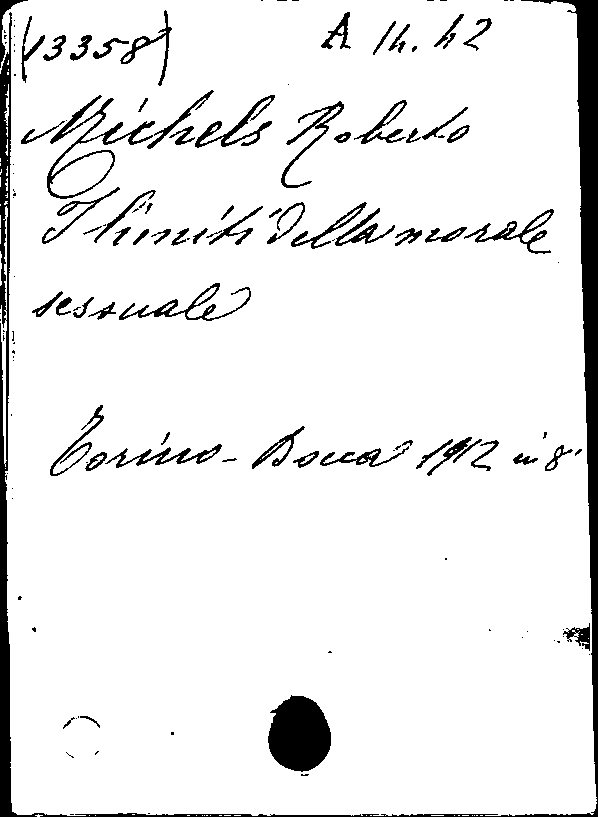 (13358) A 14. 42
Michels Roberto
I limiti della morale
sessuale
Torino - Bocca 1912 in 8°